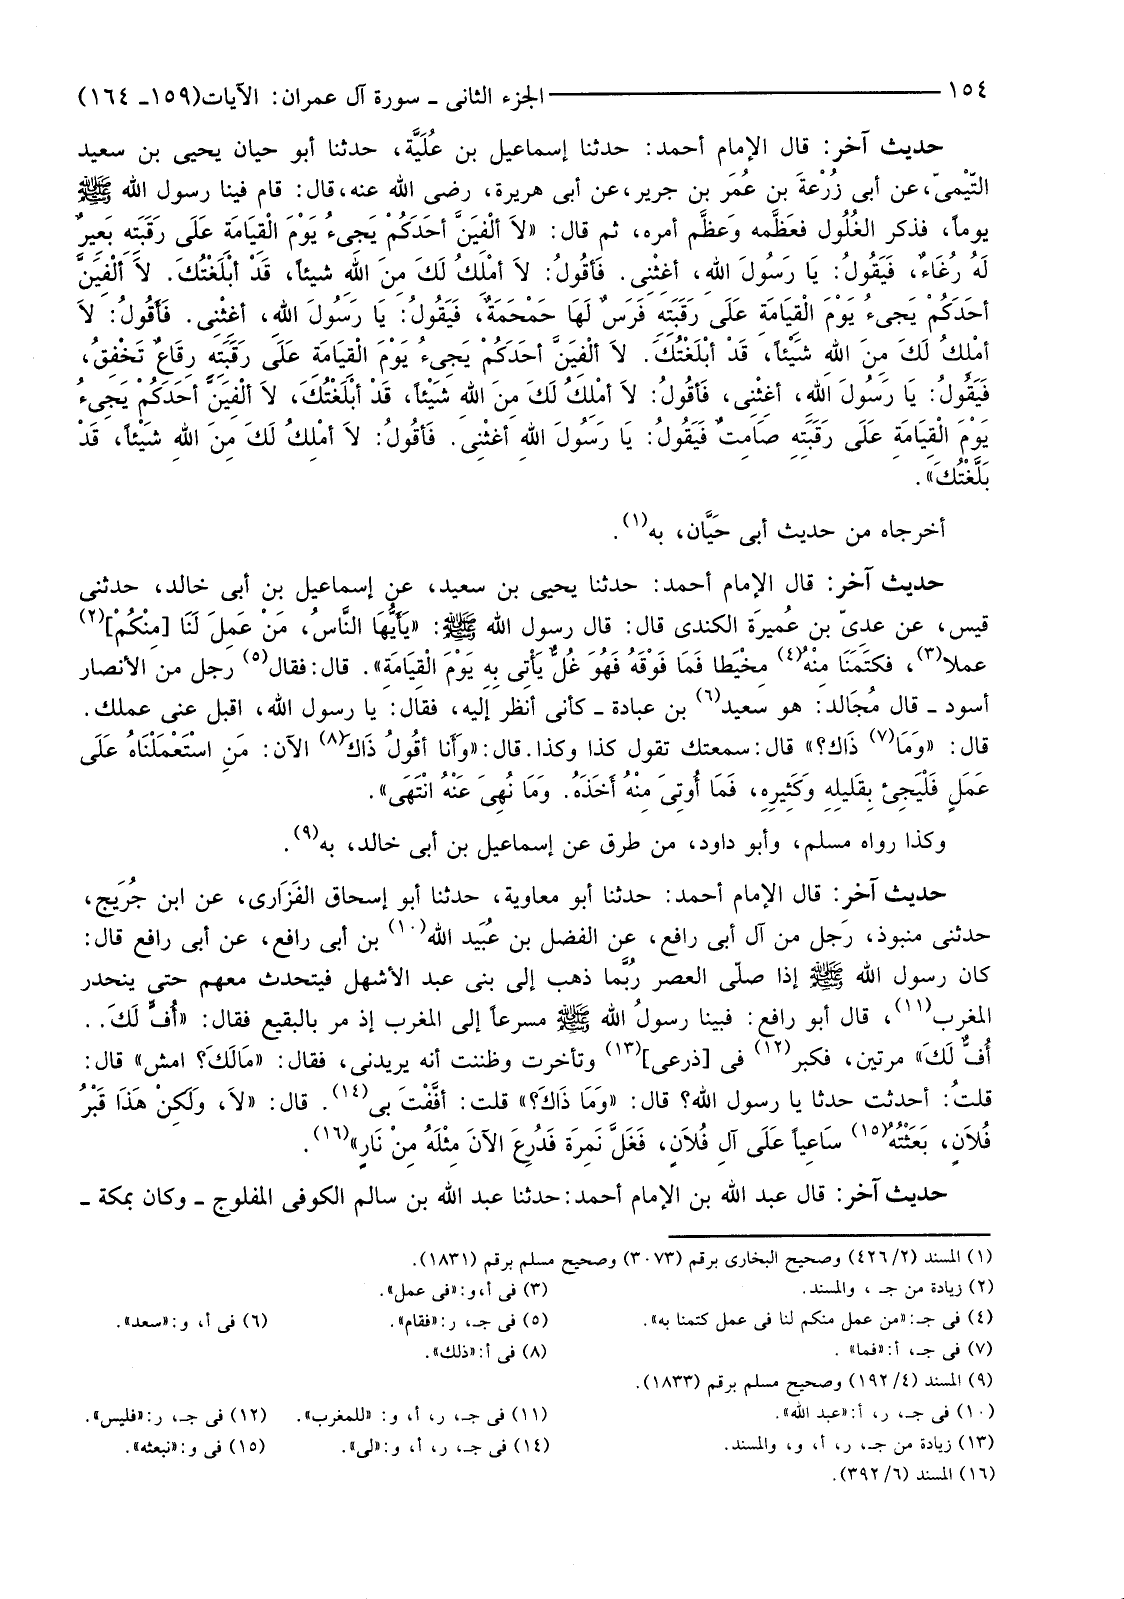 ١٥٤ ـــــــــــــــــــــ الجزء الثانى ـ سورة آل عمران: الآيات(١٥٩ـ ١٦٤)
حديث آخر: قال الإمام أحمد: حدثنا إسماعيل بن عُلَيَّة، حدثنا أبو حيان يحيى بن سعيد
التَّيْمىّ،عن أبى زُرْعةَ بن عُمَر بن جرير،عن أبى هريرة، رضى الله عنه،قال: قام فينا رسول الله ﷺ
يوماً، فذكر الغُلُول فعَظَّمه وَعظَّم أمره، ثم قال: «لاَ ألْفيَنَّ أحَدَكُمْ يَجىءُ يَوْمَ الْقيَامَة عَلَى رَقَبَتهِ بَعيرٌ
لَهُ رُغَاءٌ، فَيَقُولُ: يَا رَسُولَ الله، أغثْنى. فَأقُولُ: لاَ أمْلكُ لَكَ منَ اللهِ شيئاً، قَدْ أبْلَغْتُكَ. لاَ ألْفيَنَّ
أحَدَكُمْ يَجىءُ يَوْمَ الْقِيَامَةِ عَلَى رَقَبَتهِ فَرَسٌ لَهَا حَمْحَمَةٌ، فَيَقُولُ: يَا رَسُولَ الله، أغثْنى. فَأقُولُ: لاَ
أمْلكُ لَكَ مِنَ اللهِ شَيْئاً، قَدْ أبْلَغتُكَ. لاَ ألْفيَنَّ أحَدَكُمْ يَجىءُ يَوْمَ الْقيَامَةِ عَلَى رَقَبَتِهِ رِقاعٌ تَخْفقُ،
فَيَقُولُ: يَا رَسُولَ الله، أغثْنى، فَأقُولُ: لاَ أمْلكُ لَكَ منَ اللهِ شَيْئاً، قَدْ أبْلَغْتُكَ، لاَ ألْفيَنَّ أحَدَكُمْ يَجىءُ
يَوْمَ الْقِيَامَةِ عَلَى رَقَبَتِهِ صَامتٌ فَيَقُولُ: يَا رَسُولَ اللهِ أغثْنى. فَأقُولُ: لاَ أمْلكُ لَكَ مِنَ اللهِ شَيْئاً، قَدْ
بَلَّغْتُكَ».
أخرجاه من حديث أبى حَيَّان، به(١).
حديث آخر: قال الإمام أحمد: حدثنا يحيى بن سعيد، عن إسماعيل بن أبى خالد، حدثنى
قيس، عن عدىّ بن عُميرَة الكندى قال: قال رسول الله ﷺ: «يَأَيُّهَا النَّاسُ، مَنْ عَمِلَ لَنَا [منكُمْ](٢)
عملا(٣)، فكتَمَنَا مِنْهُ(٤) مِخْيَطا فَمَا فَوْقَهُ فَهُوَ غُلٌّ يَأْتِى بِهِ يَوْمَ الْقِيَامَةِ». قال:فقال(٥) رجل من الأنصار
أسود ـ قال مُجَالد: هو سعيد(٦) بن عبادة ـ كأنى أنظر إليه، فقال: يا رسول الله، اقبل عنى عملك.
قال: «وَمَا(٧) ذَاكَ؟» قال:سمعتك تقول كذا وكذا.قال:«وَأنا أقُولُ ذَاكَ(٨) الآن: مَنِ اسْتَعْمَلْنَاهُ عَلَى
عَمَلٍ فَلْيَجِئْ بِقَلِيلِهِ وَكَثِيرِهِ، فَمَا أُوتِىَ مِنْهُ أَخَذَهُ. وَمَا نُهِىَ عَنْهُ انْتَهَى».
وكذا رواه مسلم، وأبو داود، من طرق عن إسماعيل بن أبى خالد، به(٩).
حديث آخر: قال الإمام أحمد: حدثنا أبو معاوية، حدثنا أبو إسحاق الفَزَارى، عن ابن جُرَيج،
حدثنى منبوذ، رَجل من آل أبى رافع، عن الفضل بن عُبَيد الله(١٠) بن أبى رافع، عن أبى رافع قال:
كان رسول الله ﷺ إذا صلّى العصر رُبَّما ذهب إلى بنى عبد الأشهل فيتحدث معهم حتى ينحدر
المغرب(١١)، قال أبو رافع: فبينا رسولُ الله ﷺ مسرعاً إلى المغرب إذ مر بالبقيع فقال: «أُفٍّ لَكَ..
أُفٍّ لَكَ» مرتين، فكبر(١٢) فى [ذرعى](١٣) وتأخرت وظننت أنه يريدنى، فقال: «مَالَكَ؟ امش» قال:
قلتُ: أحدثت حدثا يا رسول الله؟ قال: «وَمَا ذَاكَ؟» قلت: أفَّفْتَ بى(١٤). قال: «لاَ، وَلَكِنْ هَذَا قَبْرُ
فُلاَنٍ، بَعَثْتُهُ(١٥) سَاعِياً عَلَى آلِ فُلاَنٍ، فَغَلَّ نَمِرَة فَدُرِعَ الآنَ مِثْلَهُ مِنْ نَارٍ»(١٦).
حديث آخر: قال عبد الله بن الإمام أحمد:حدثنا عبد الله بن سالم الكوفى المفلوج ـ وكان بمكة ـ
(١) المسند (٤٢٦/٢) وصحيح البخارى برقم (٣٠٧٣) وصحيح مسلم برقم (١٨٣١).
(٢) زيادة من جـ ، والمسند. (٣) فى أ،و:«فى عمل».
(٤) فى جـ:«من عمل منكم لنا فى عمل كتمنا به». (٥) فى جـ، ر:«فقام». (٦) فى أ، و:«سعد».
(٧) فى جـ، أ:«فما» . (٨) فى أ:«ذلك».
(٩) المسند (١٩٢/٤) وصحيح مسلم برقم (١٨٣٣).
(١٠) فى جـ، ر، أ:«عبد الله». (١١) فى جـ، ر، أ، و: «للمغرب». (١٢) فى جـ، ر:«فليس».
(١٣) زيادة من جـ، ر، أ، و، والمسند. (١٤) فى جـ، ر، أ، و:«لى». (١٥) فى و:«نبعثه».
(١٦) المسند (٣٩٢/٦).